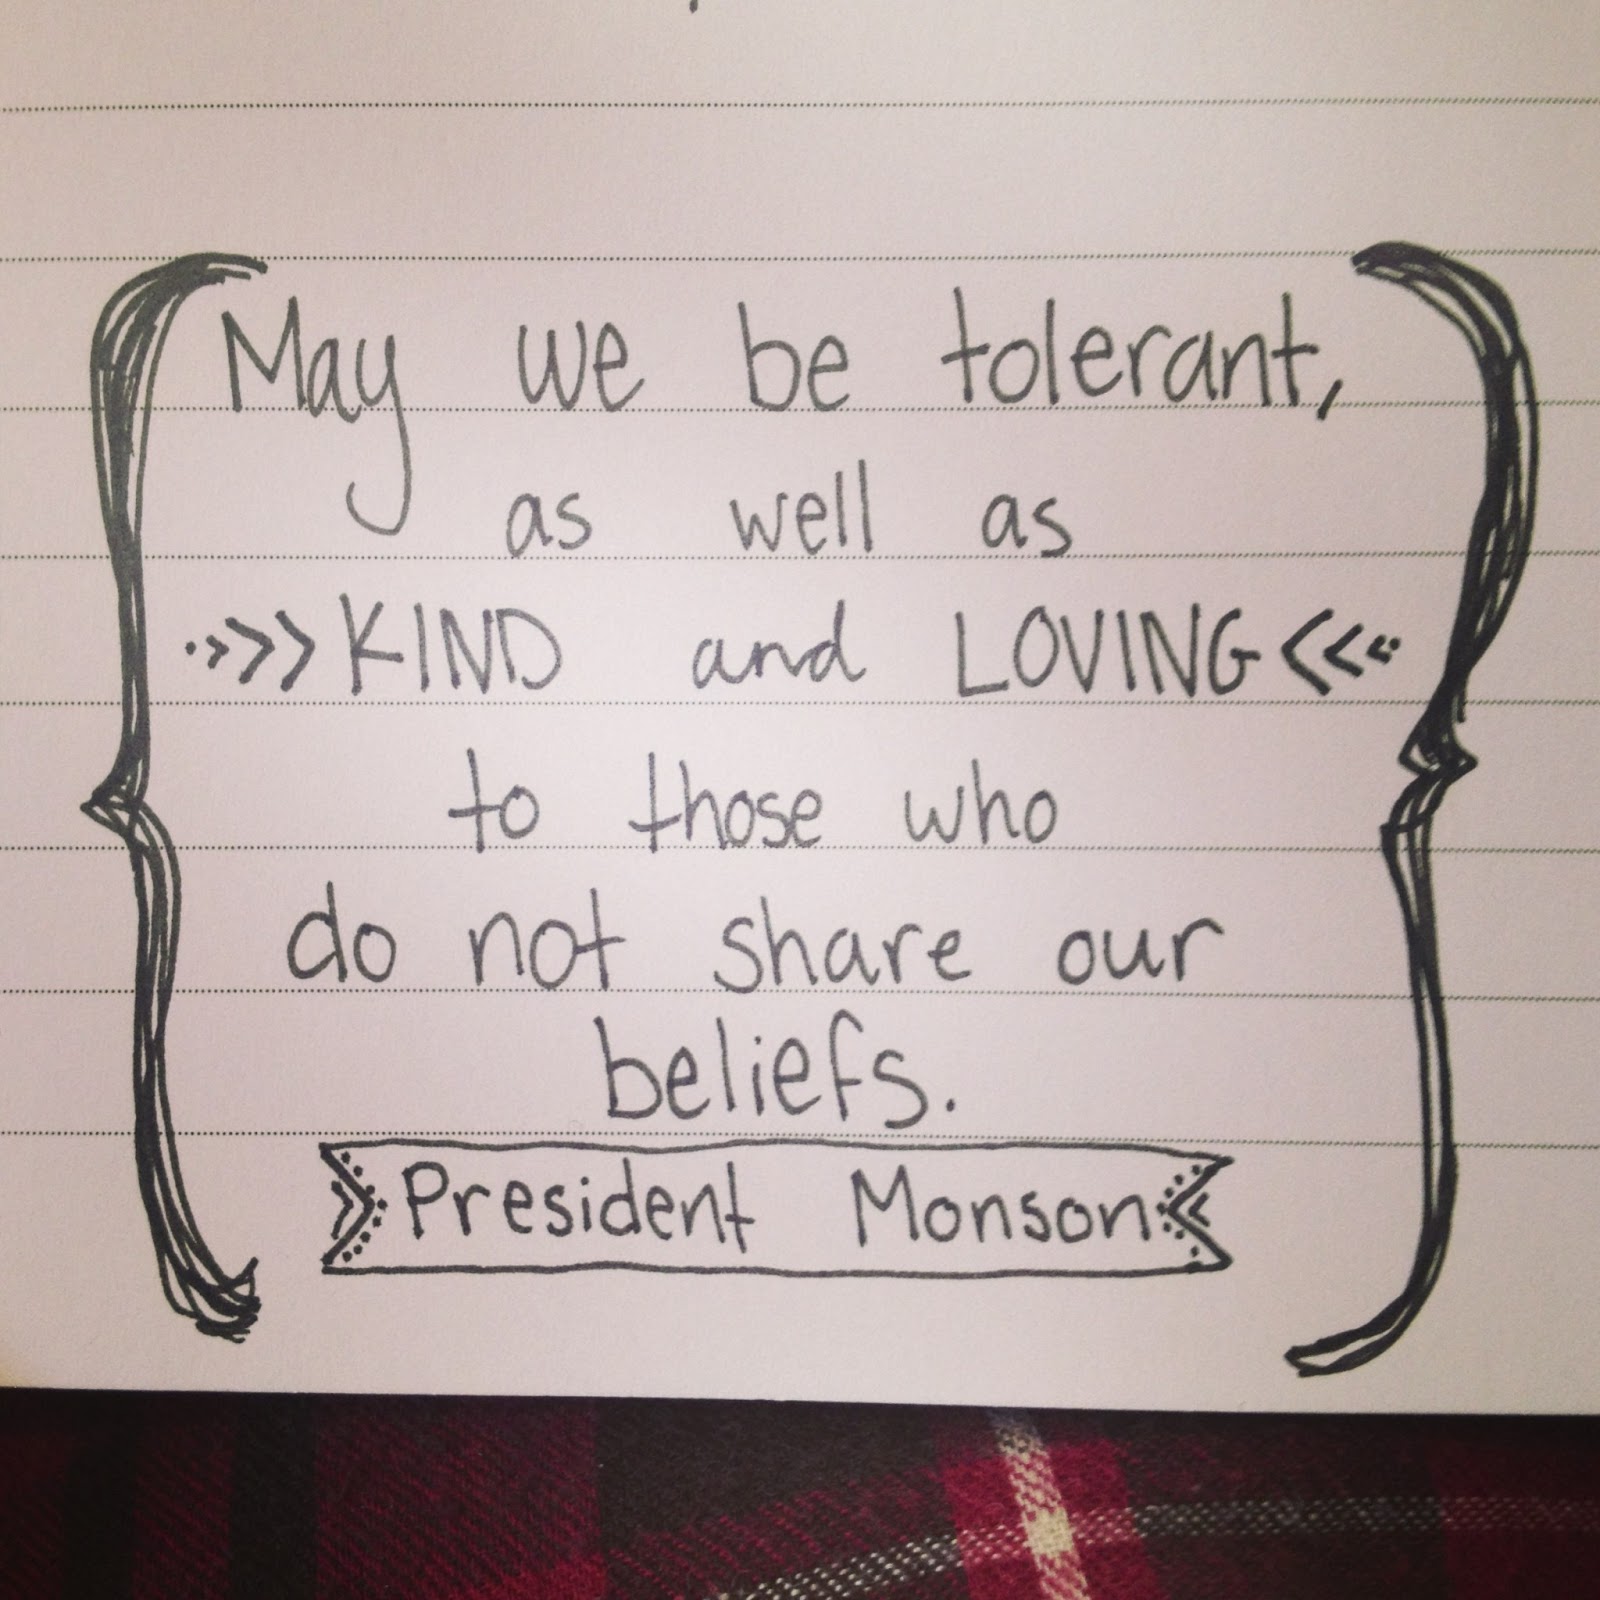 May we be tolerant,
as well as
KIND and LOVING
to those who
do not share our
beliefs.
President Monson